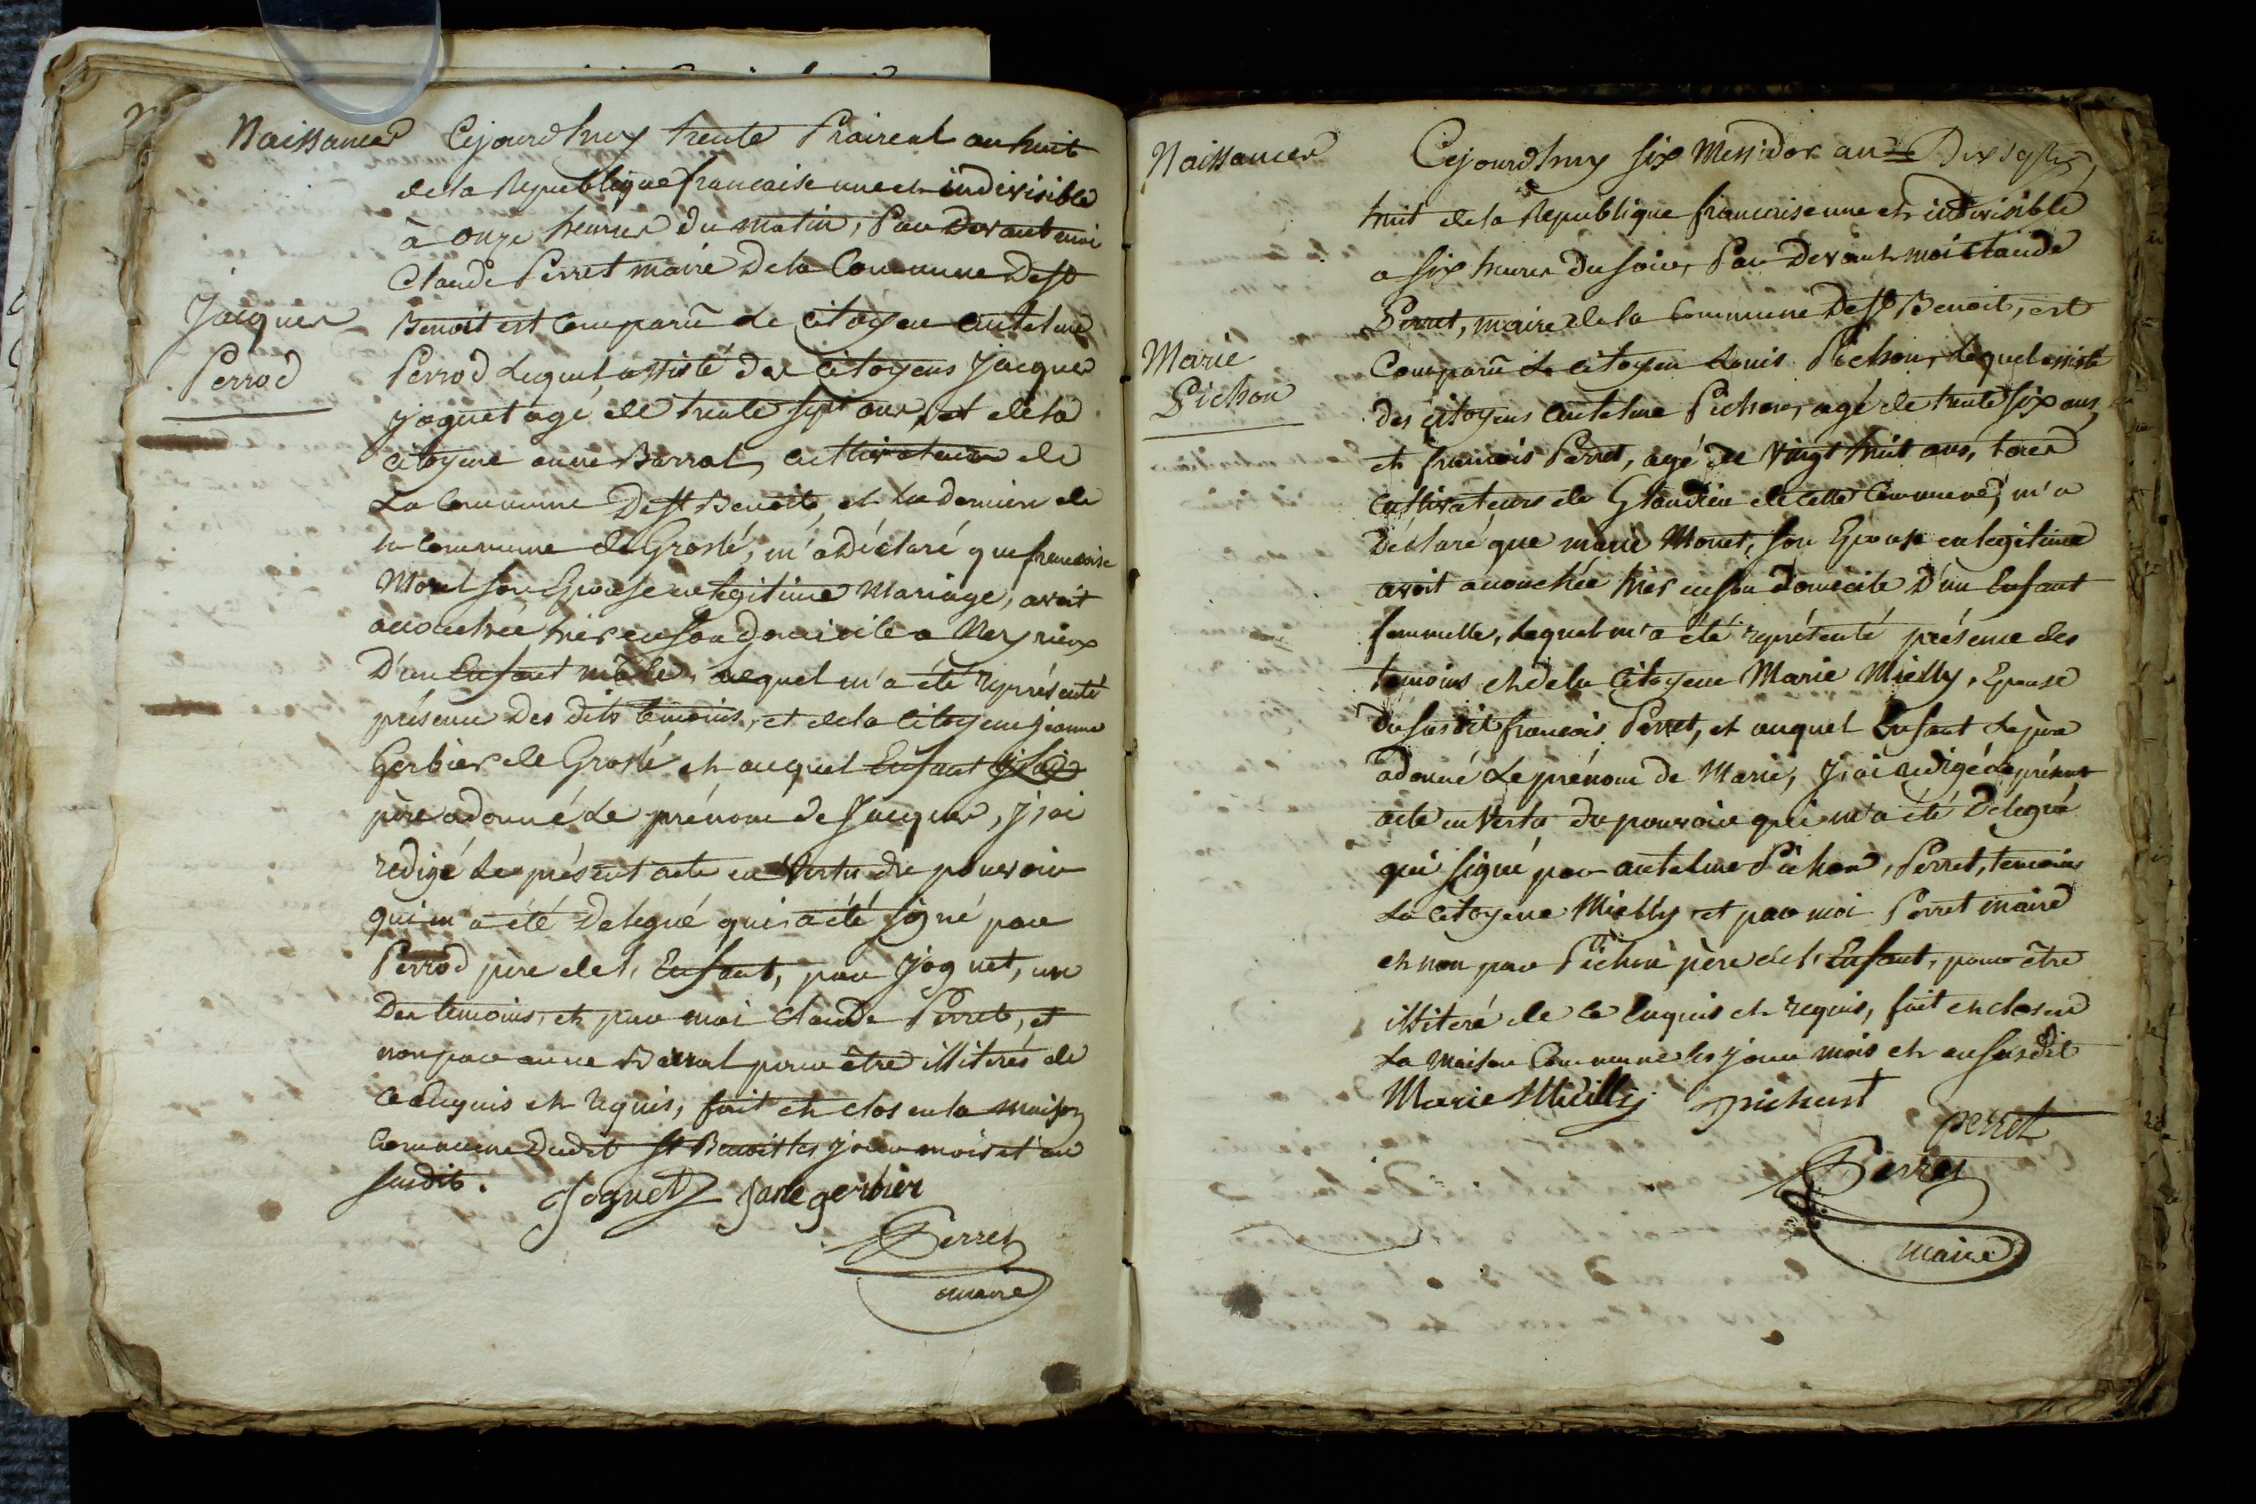 Naissances
Jacques
Perrod
Cejourdhuy trente Praireal an huit
de la Republique francaise une et indivisible
à onze heures du matin, Par Devant moi
Claude Perret maire De la Commune De St
Benoit est Comparû Le Citoyen antelme
Perrod Lequel assisté des Citoyens Jacques
Joguet agé de trente sept ans, et de la
citoyene anne Barral, cultivateurs de
La Commune De St Benoit, et La derniere de
la Commune de Groslé, m'a Déclaré que francoise
Morel son Epouse en legitime Mariage, avoit
accouchée hier en son domicile a Meyrieux
D'un Enfant mâle, lequel m'a été représenté
présence Des dits temoins, et de la Citoyene jeanne
Gerbier de Groslé et auquel Enfant
père a donné Le prénom de Jacques, j'ai
redigé Le présent acte en Vertu du pouvoir
qui m'a été Delegué qui a été signé par
Perrod pere de l'Enfant, par Joguet, un
Des temoins, et par moi Claude Perret, et
non par anne Barral pour être illiterés de
ce Enquis et requis, fait et clos en la maison
Commune Dudit St Benoit les jour mois et an
susdits.
Joguet Jane gerbier
Perret
maire
Naissances
Marie
Pichon
Cejourdhuy six Messidor an
huit de la Republique francaise une et indivisible
a six heures du soir, Par Devant moi Claude
Perret, maire de la Commune De St Benoit, est
Comparû Le Citoyen Louis Pichon, Lequel assisté
des Citoyens antelme Pichon, agé de trente six ans,
et francois Perret, agé de Vingt huit ans, tous
Cultivateurs de Glandieu de cette Commune, m'a
Déclaré que marie Monet, son Epouse en legitime
avoit accouchée hier en son domicile D'un Enfant
femmelle, Lequel m'a été représenté présence des
temoins et de la Citoyene Marie Mielly, Epouse
du susdit francois Perret, et auquel Enfant Le père
a donné Le prénom de Marie, j'ai redigé Le présent
acte en Vertu du pouvoir qui m'a été Delegué
qui signé par antelme Pichon, Perret, temoins
La Citoyene Mielly et par moi Perret maire
et non par Pichon père de l'Enfant, pour être
illiteré de ce Enquis et requis, fait et clos en
La maison Commune les jour mois et an susdit
Marie Mielly pichont
perret
Perret
maire